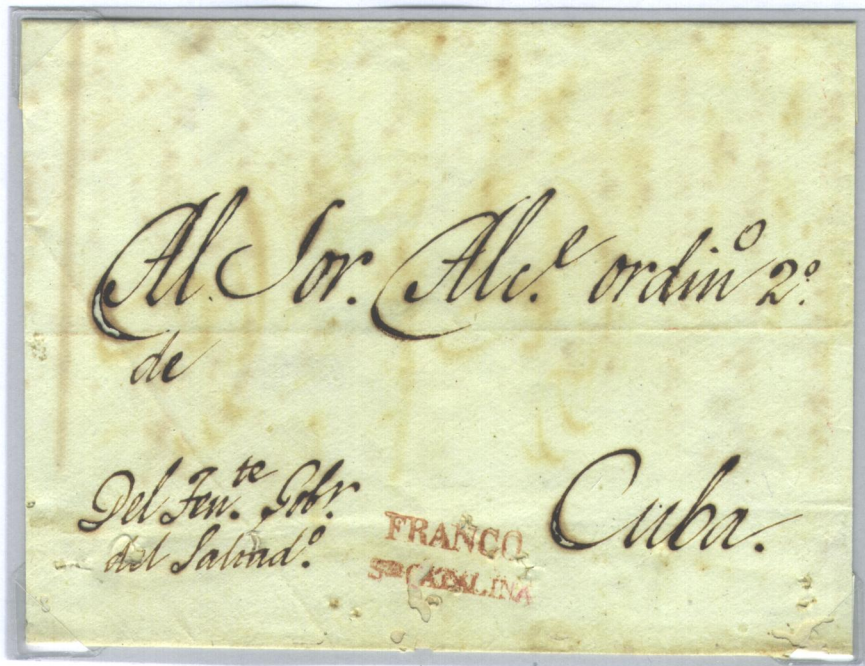 Al Sor. Alc.e ordin.o 2.o
de
Cuba.
Del Ten.te Gob.r
del Saltad.o
FRANCO
Sta CATALINA